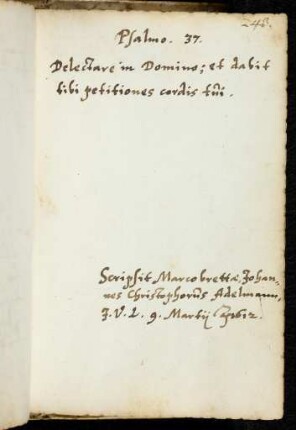 248.
Psalmo. 37.
Delectare in Domino; et dabit
tibi petitiones cordis tui.
Scripsit Marcobrettæ Johan-
nes Christophorus Adelmann,
J. V. L. 9. Martij 1612.